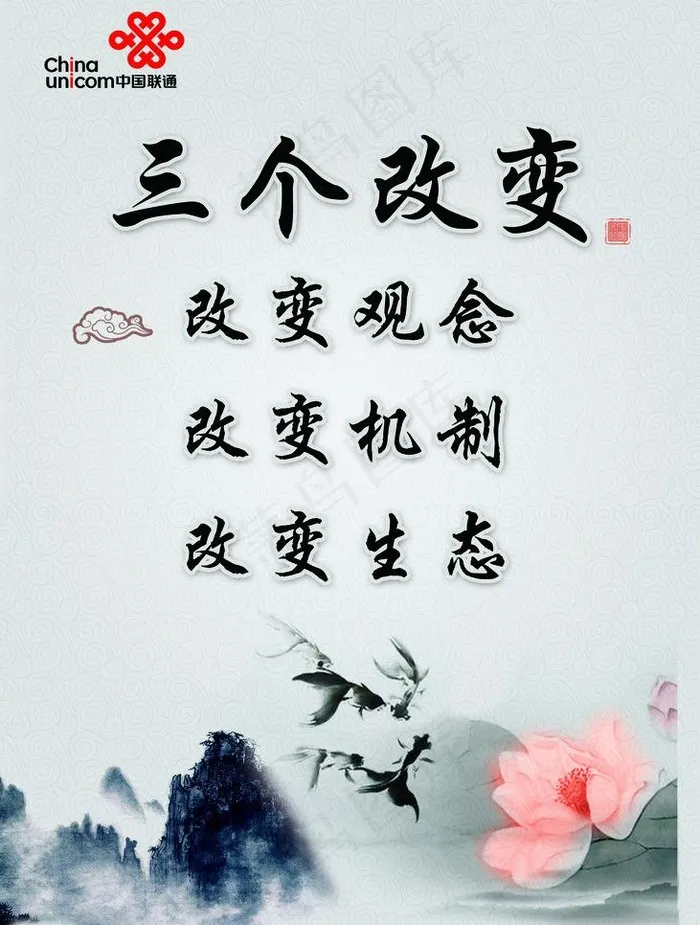 China
unicom中国联通
三个改变
改变观念
改变机制
改变生态